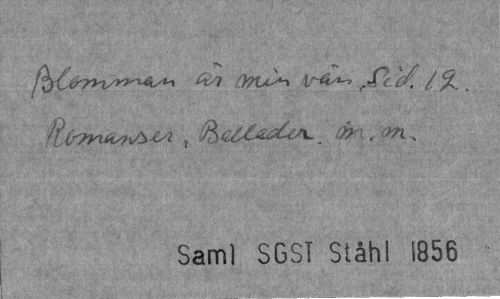 Blomman är min vän, Sid. 12.
Romanser, Ballader. m.m.
Saml SGST Ståhl 1856